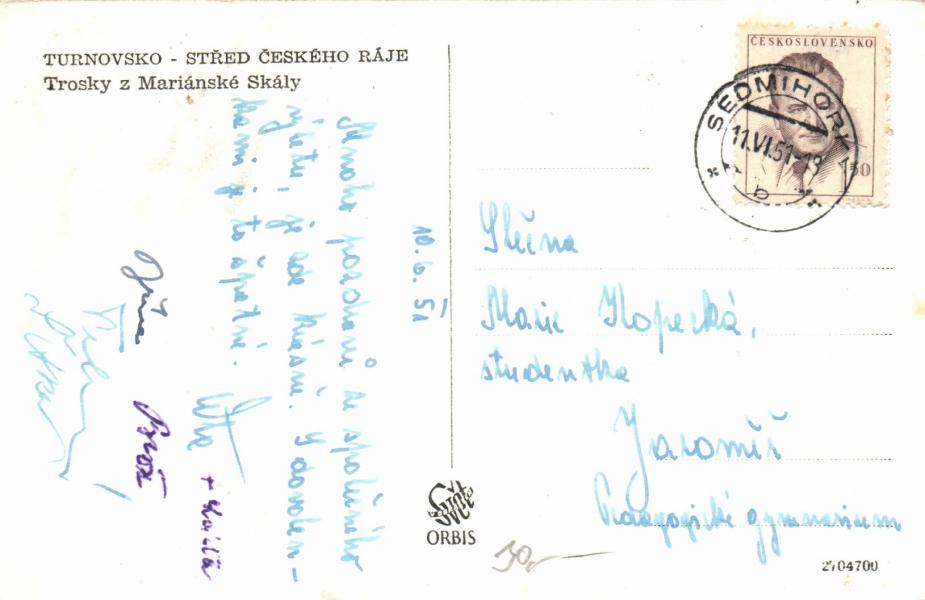 TURNOVSKO - STŘED ČESKÉHO RÁJE
Trosky z Mariánské Skály
10. 6. 51
Mnoho pozdravů ze společného
výletu, je zde krásně. S dovolen-
kami je to špatné.
+ Káťa
Jiřina
ČESKOSLOVENSKO
1.50
SEDMIHORKY
11.VI.51-13
b
Slečna
Marie Kopecká,
studentka
Jaroměř
Pedagogické gymnasium
Svět
ORBIS
30,-
2704700